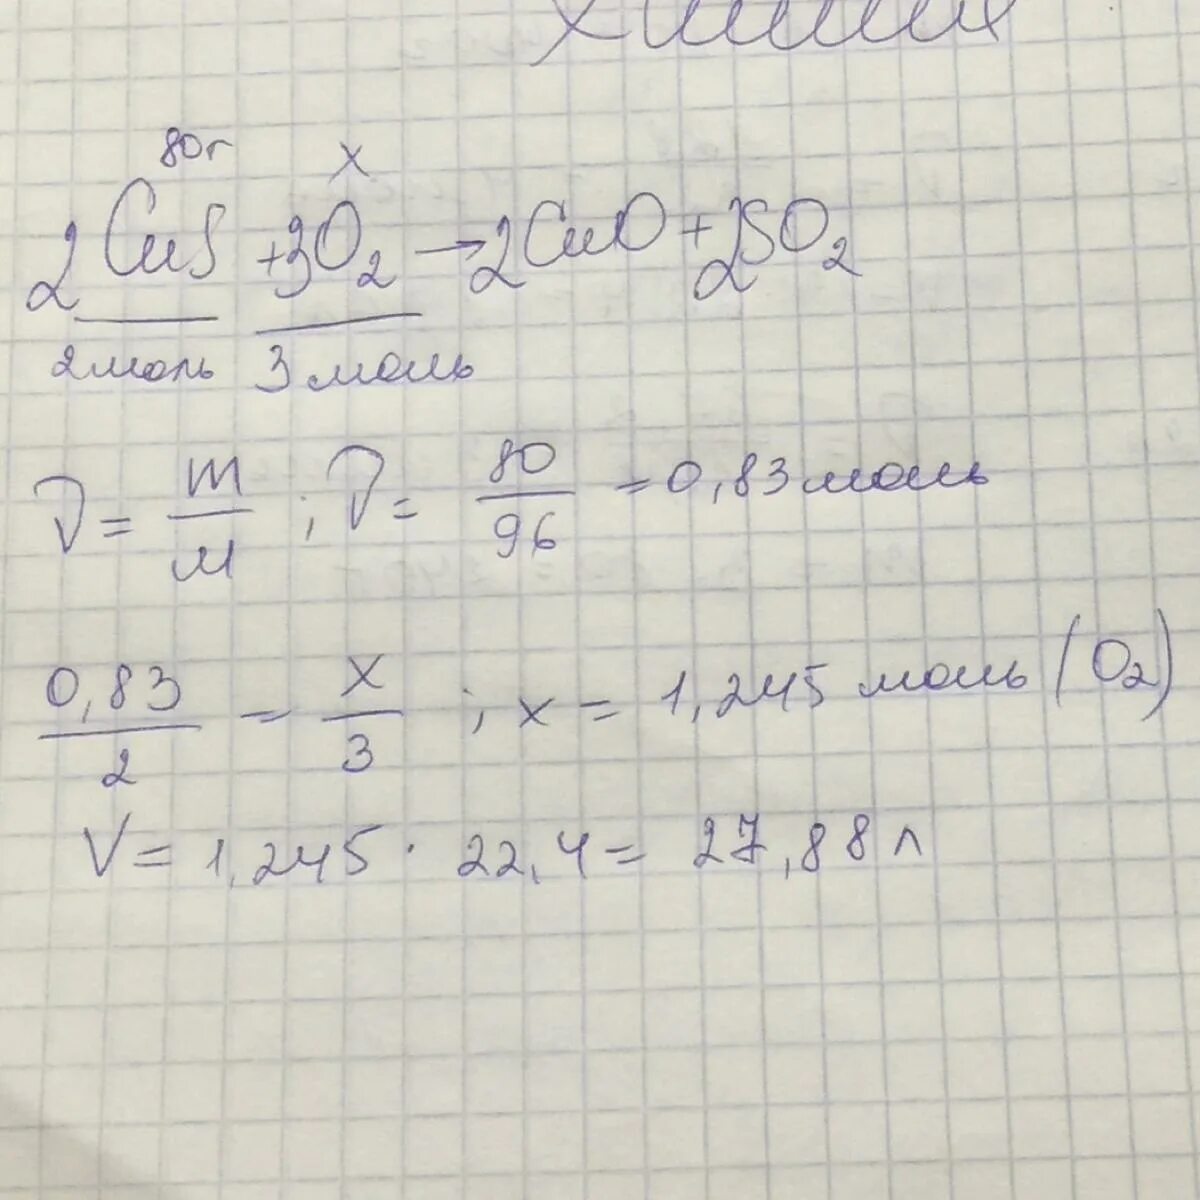 80г x
2CuS + 3O₂ → 2CuO + 2SO₂
2моль 3моль
ν = m/M ; ν = 80/96 = 0,83моль
0,83/2 = x/3 ; x = 1,245 моль (O₂)
V = 1,245 · 22,4 = 27,88 л